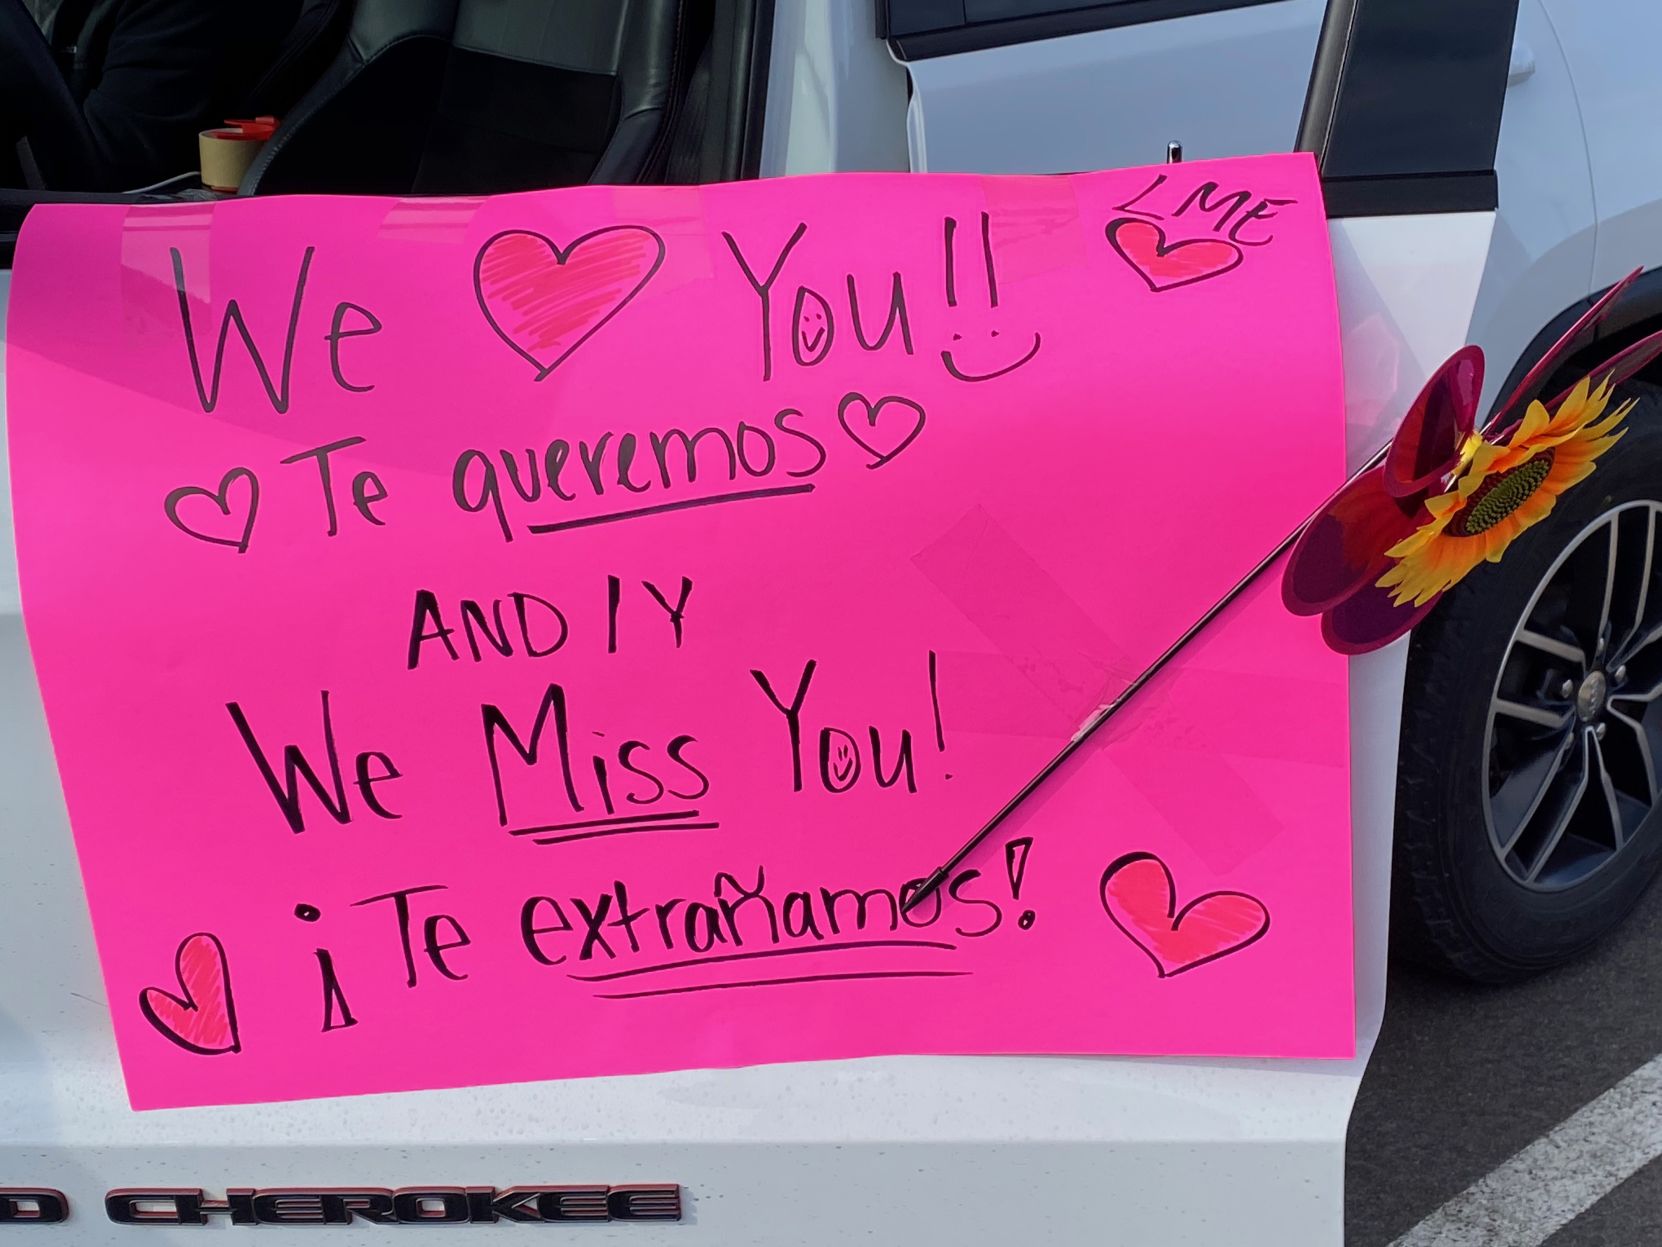 We You!!
LME
Te queremos
AND / Y
We Miss You!
¡Te extrañamos!
D CHEROKEE